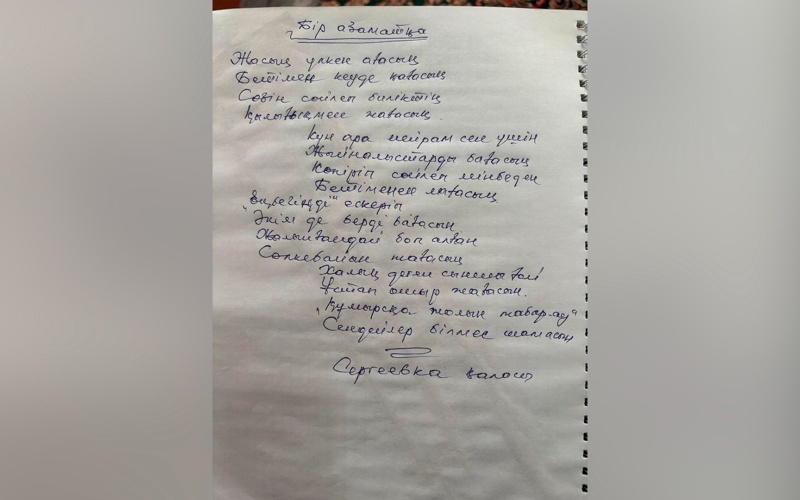 Бір азаматқа
Жасың үлкен ағасың
Бетімен кеуде қағасың
Сөзін сөйлеп биліктің
Қылығыңмен жағасың.
Күн ара мейрам сен үшін
Жыйналыстарды бағасың
Көпіріп сөйлеп мінбеден
Бетіменен лағасың
"Еңбегіңді" ескеріп
Әкім де берді бағасын
Жалығандай боп алған
Сөлкебайын тағасың
Халық деген сыншы ғой
Ұстап отыр жағасын.
"Құмырсқа жолын табар ау"
Сендейлер білмес шамасын
Сергеевка қаласы